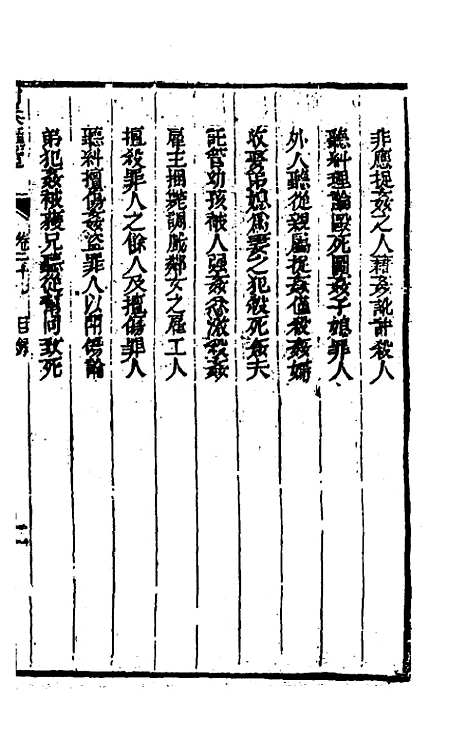 非應捉姦之人藉姦訛詐殺人
聽糾理論毆死圖姦子媳罪人
外人聽從親屬捉姦僅殺姦婦
收娶弟媳為妻之犯殺死姦夫
託管幼孩被人強姦忿激殺姦
雇主捆毙調戲鄰女之雇工人
擅殺罪人之餘人及擅傷罪人
聽糾擅傷姦盜罪人以鬥傷論
弟犯姦被獲兄聽從幫同致死
卷二十 目錄 二